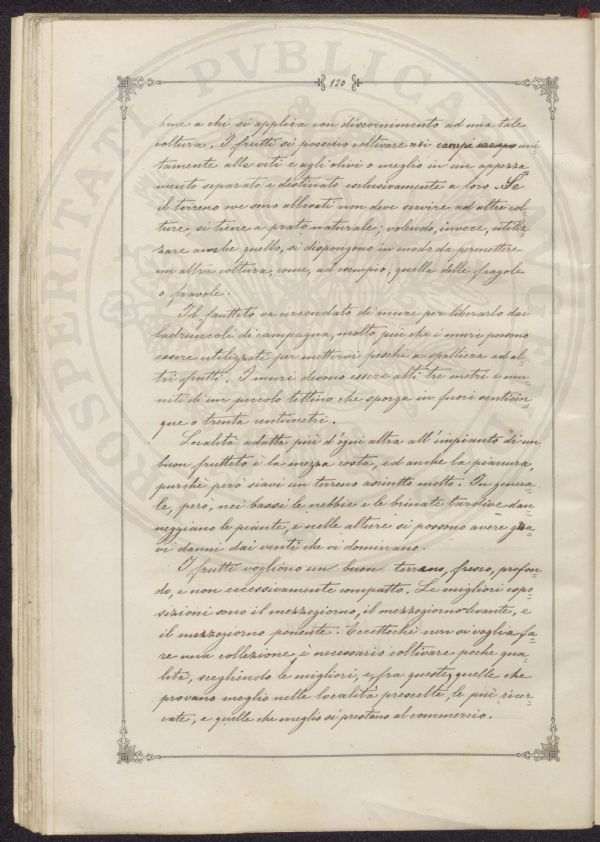 120
bene a chi si applica con discernimento ad una tale
coltura. I frutti si possono coltivare nei campi uni
tamente alle viti e agli olivi o meglio in un appezza
mento separato e destinato esclusivamente a loro. Se
il terreno ove sono allevati non deve servire ad altre col-
ture, si tiene a prato naturale; volendo, invece, utiliz-
zare anche quello, si dispongono in modo da permettere
un'altra coltura, come, ad esempio, quella delle fragole
o fravole.
Il frutteto va circondato di muri per liberarlo dai
ladruncoli di campagna, molto più che i muri possono
essere utilizzati per mettervi peschi a spalliera ed al-
tri frutti. I muri devono essere alti tre metri e mu-
niti di un piccolo tettino che sporga in fuori venticin-
que o trenta centimetri.
Località adatta più d'ogni altra all'impianto di un
buon frutteto è la mezza costa, ed anche la pianura,
purchè però siavi un terreno asciutto molto. In genera-
le, però, nei bassi le nebbie e le brinate tardive dan-
neggiano le piante, e nelle alture si possono avere gra-
vi danni dai venti che vi dominano.
I frutti vogliono un buon terreno, fresco, profon-
do, e non eccessivamente compatto. Le migliori espo-
sizioni sono il mezzogiorno, il mezzogiorno-levante, e
il mezzogiorno ponente. Eccettochè non si voglia fa-
re una collezione, è necessario coltivare poche qua-
lità, scegliendo le migliori, e, fra queste, quelle che
provano meglio nelle località prescelte, le più ricer-
cate, e quelle che meglio si prestano al commercio.
PROSPERITATI PVBLICAE AVGENDAE